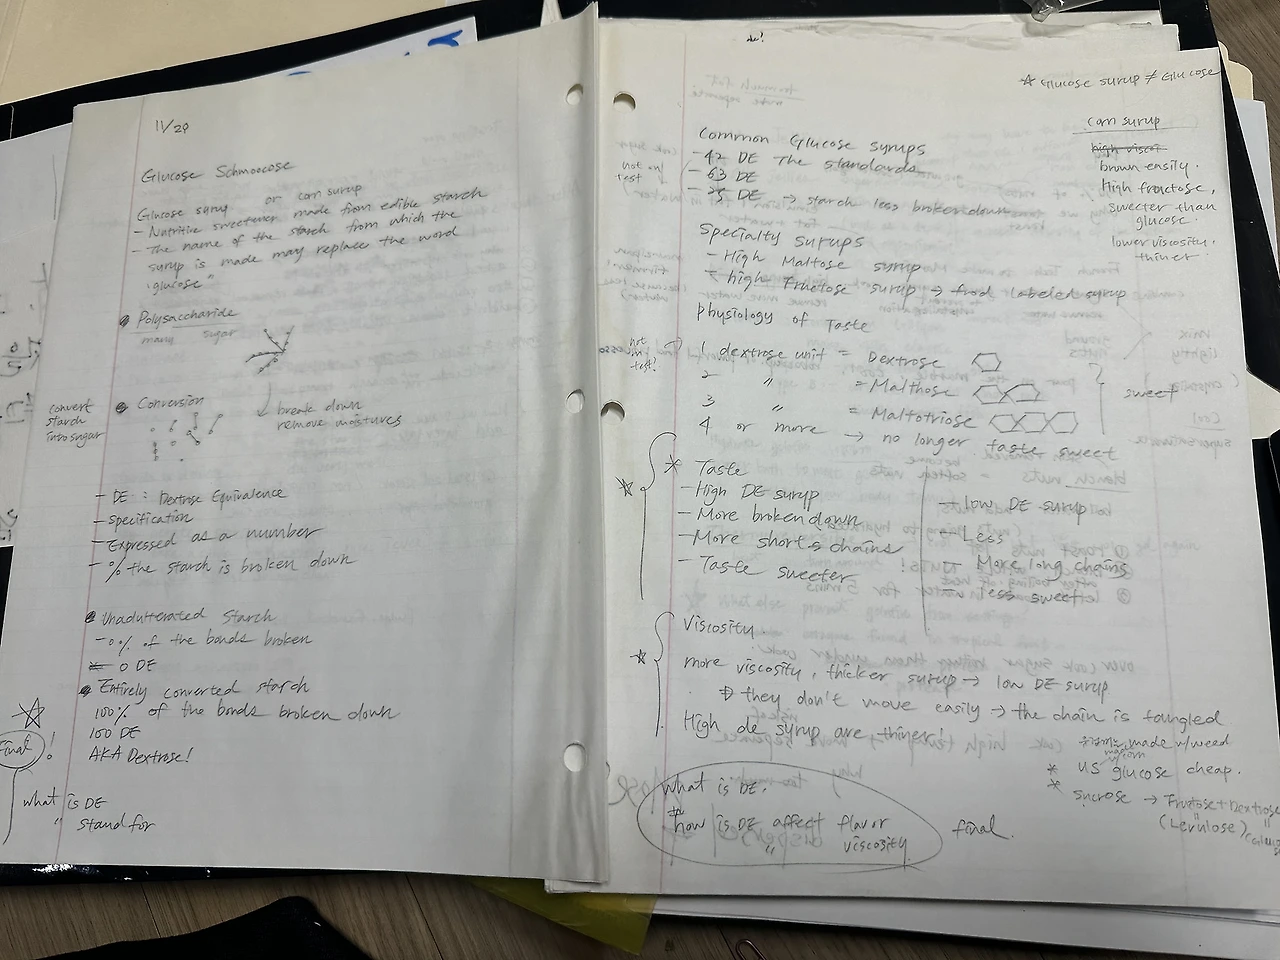 11/29
Glucose Schmoocose
Glucose syrup or corn surup
- Nutritive sweetener made from edible starch
- The name of the starch from which the
surup is made may replace the word
"glucose"
Polysaccharide
many sugar
Conversion
break down
remove moistures
convert
starch
into sugar
- DE : Dextrose Equivalence
- Specification
- Expressed as a number
- % the starch is broken down
Unadulterated starch
- 0% of the bonds broken
0 DE
Entirely converted starch
100% of the bonds broken down
100 DE
AKA Dextrose!
Final!
what is DE
" stand for
☆ Glucose surup ≠ Glucose
corn surup
high viscos
brown easily.
High fructose,
swecter than
glucose.
lower viscosity.
thiner.
Common Glucose syrups
- 42 DE The standards
- 63 DE
- 25 DE → starch less broken down
not on
test
Specialty surups
- High Maltose syrup
- high Fructose surup → food labeled syrup
physiology of Taste
not
in
test!
1 dextrose unit = Dextrose
2 " = Malthose
3 " = Maltotriose
4 or more → no longer taste sweet
sweet
* Taste
- High DE surup
- More broken down
- More short chains
- Taste sweeter
- low DE surup
- Less
More long chains
- less sweet
Viscosity.
more viscosity, thicker surup → low DE surup
they don't move easily → the chain is tangled
High de syrup are thiner!
made w/weed
made
w/corn
* US glucose cheap.
* sucrose → Fructose + Dextrose
(Levulose)
what is DE.
how is DE affect flavor
" viscosity
final.